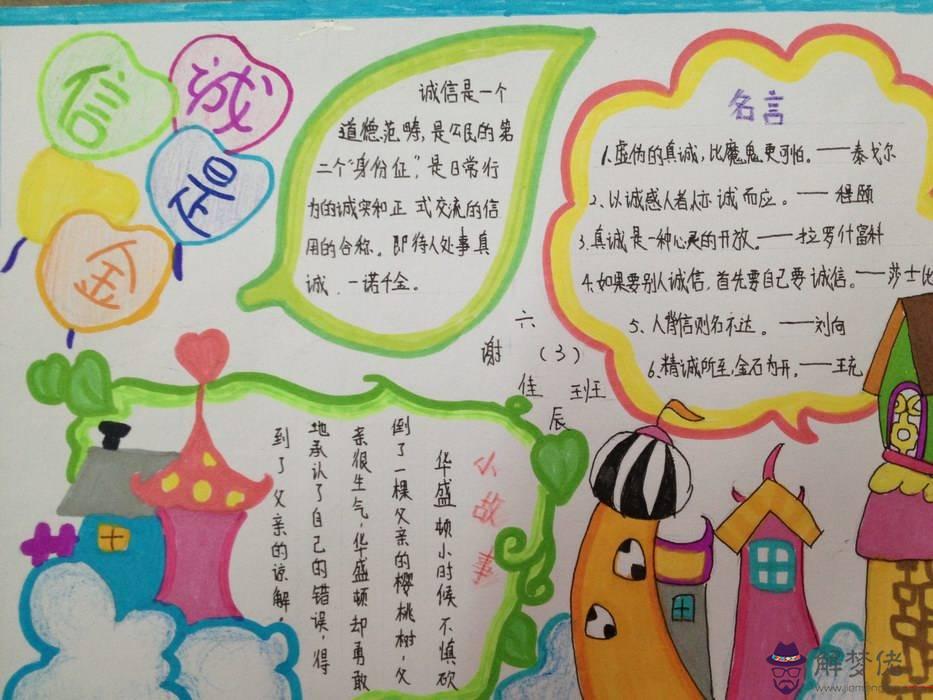 诚
信
是
金
诚信是一个
道德范畴,是公民的第
二个“身份证”,是日常行
为的诚实和正式交流的信
用的合称。即待人处事真
诚、一诺千金。
名言
1.虚伪的真诚,比魔鬼更可怕。——泰戈尔
2、以诚感人者人亦诚而应。——程颐
3.真诚是一种心灵的开放。——拉罗什富科
4.如果要别人诚信,首先要自己要诚信。——莎士比
5、人背信则名不达。——刘向
6.精诚所至,金石为开。——王充
六(3)班
谢佳辰
小故事
华盛顿小时候不慎砍
倒了一棵父亲的樱桃树,父
亲很生气,华盛顿却勇敢
地承认了自己的错误,得
到了父亲的谅解。
解梦佬